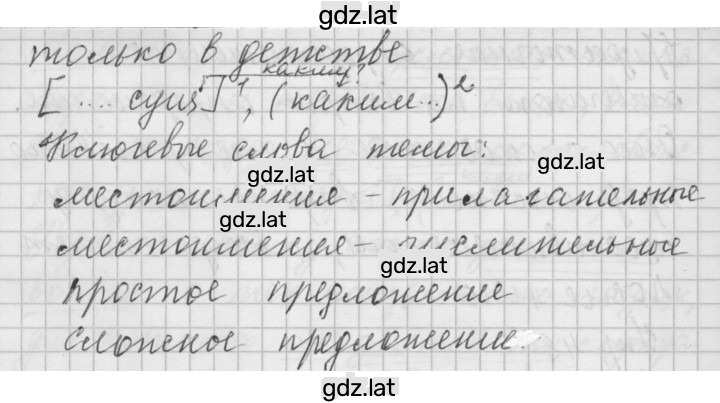 gdz.lat
только в детстве
каким?
[ .... сущ.]¹, (каким...)²
Ключевые слова темы:
gdz.lat
gdz.lat
местоимения - прилагательные
gdz.lat
местоимения - числительные
gdz.lat
простое предложение
сложное предложение.
gdz.lat